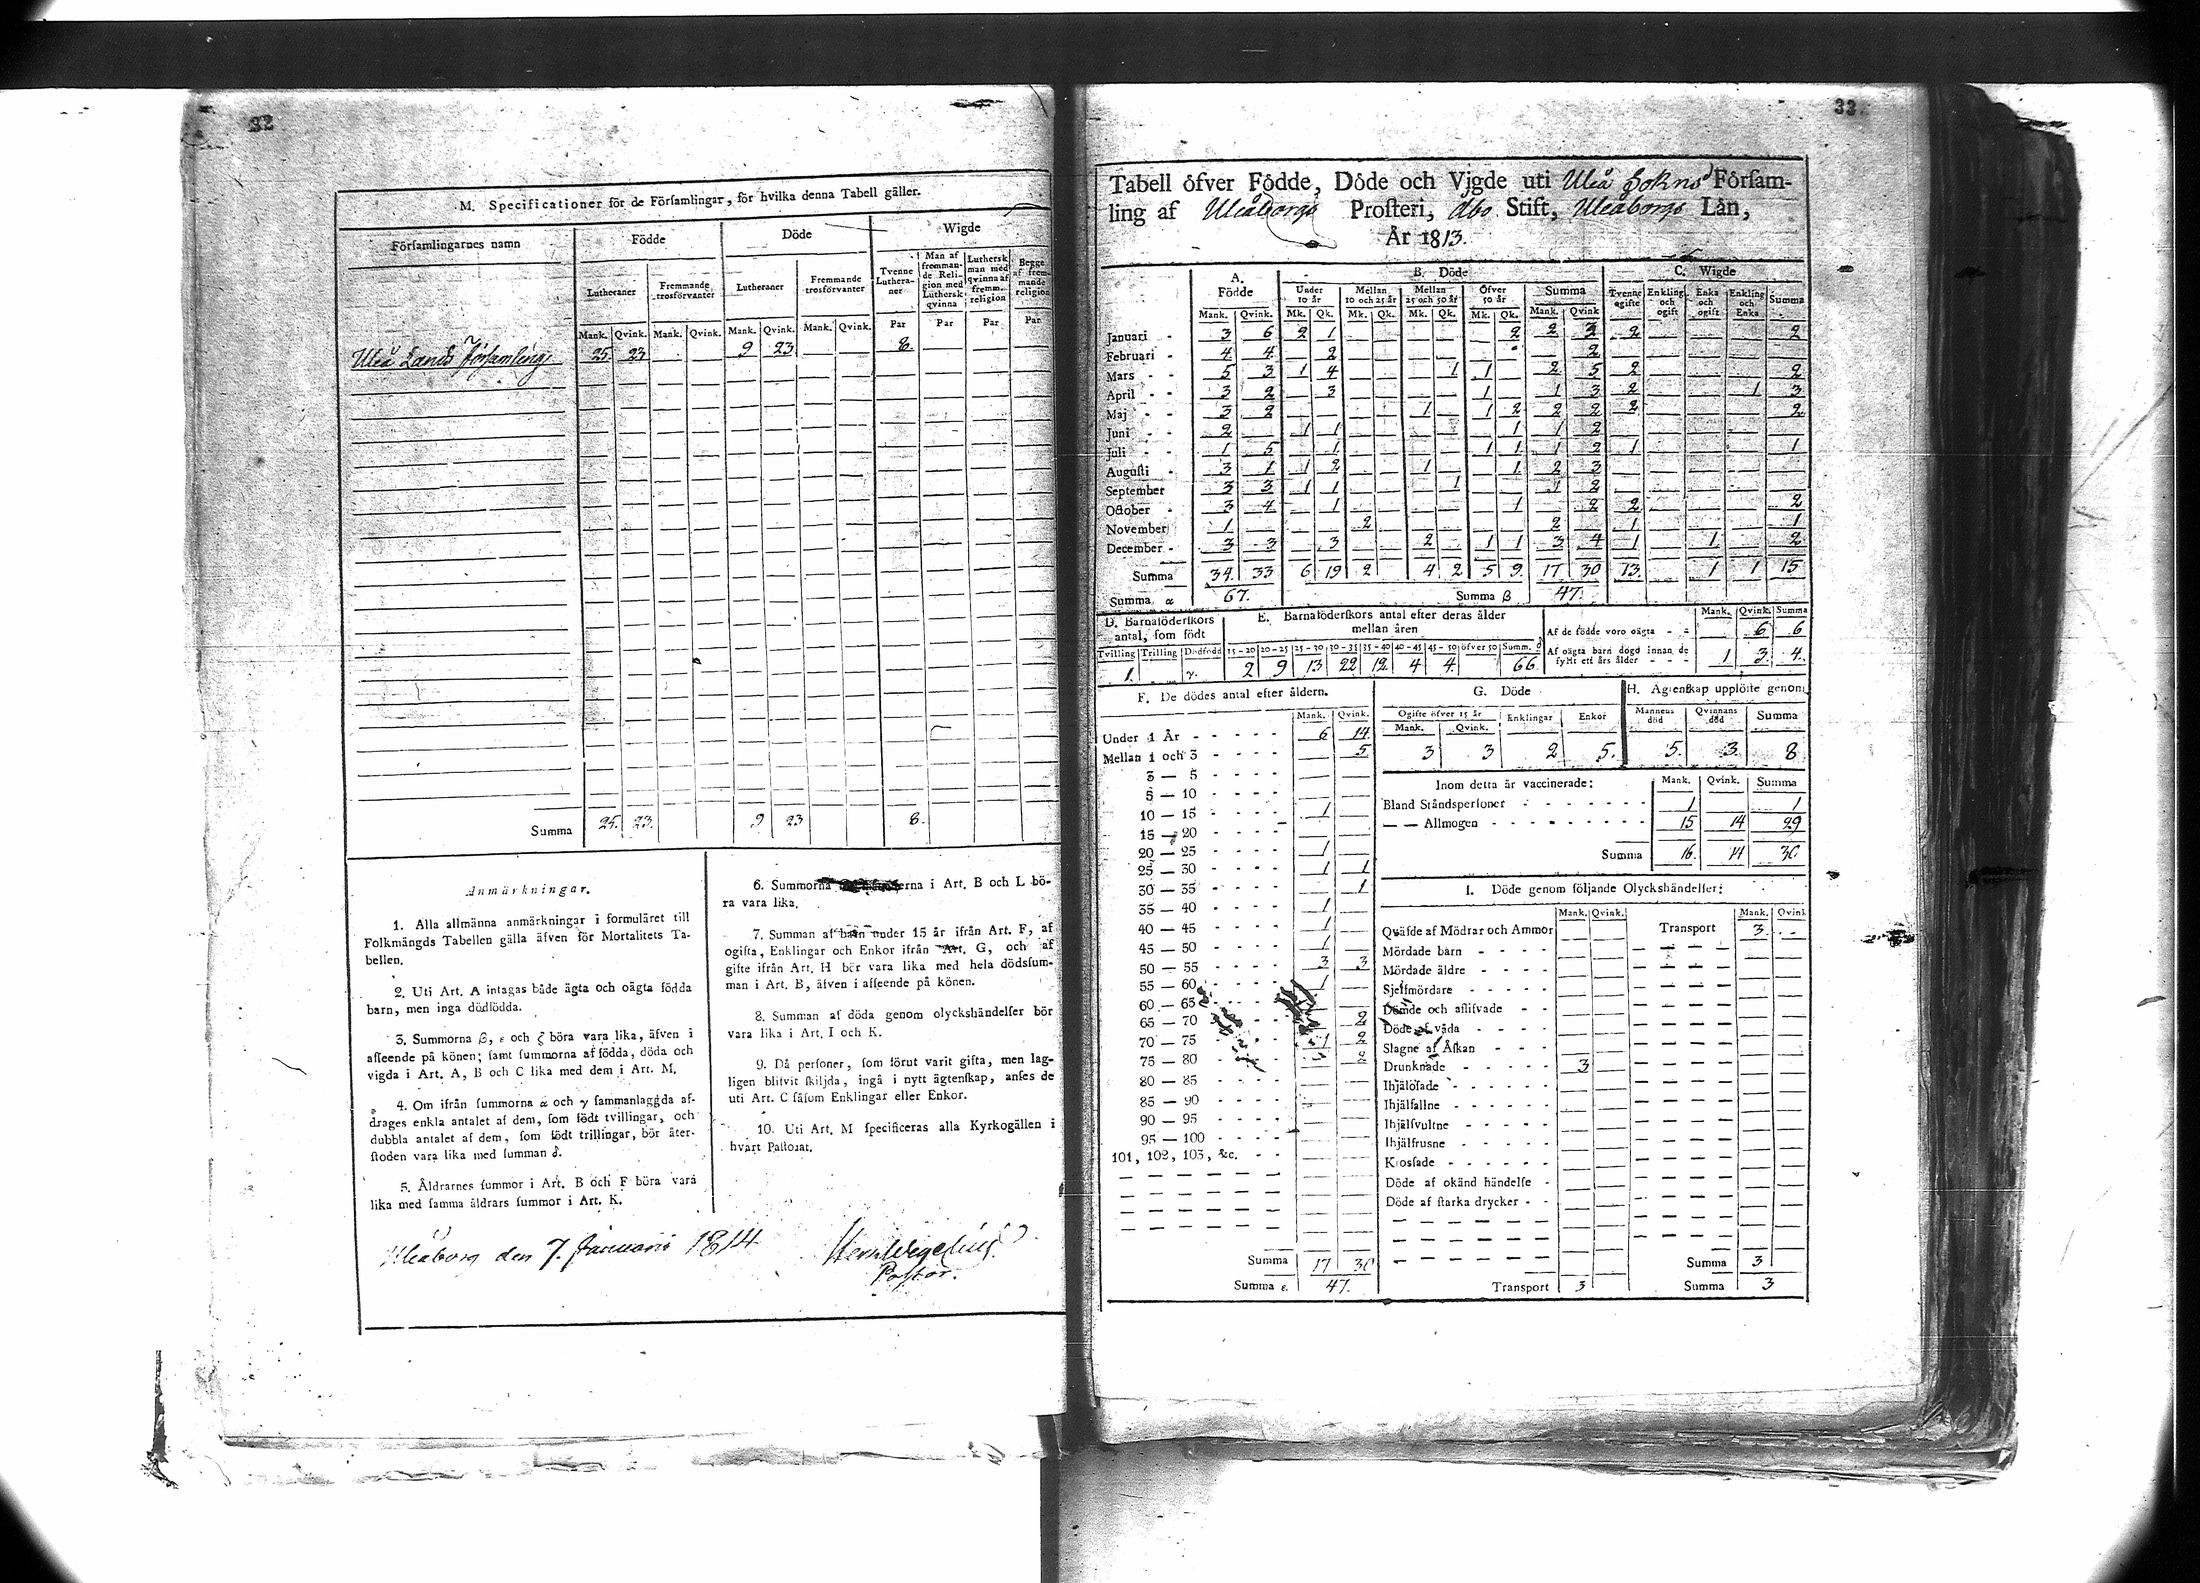 32
M. Specificationer för de Församlingar, för hvilka denna Tabell gäller.
Församlingarnes namn Födde Döde Wigde
Lutheraner Fremmande trosförvanter Lutheraner Fremmande trosförvanter Tvenne Lutheraner Man af fremmande Religion med Luthersk qvinna Luthersk man med qvinna af fremm. religion Begge af fremmande religion
Mank. Qvink. Mank. Qvink. Mank. Qvink. Mank. Qvink. Par Par Par Par
Uleå Lands Församling 25 23 9 23 8.
Summa 25. 23. 9 23 8.
Anmärkningar.
1. Alla allmänna anmärkningar i formuläret till
Folkmängds Tabellen gälla äfven för Mortalitets Ta-
bellen.
2. Uti Art. A intagas både ägta och oägta födda
barn, men inga dödfödda.
3. Summorna β, ε och ζ böra vara lika, äfven i
afseende på könen; samt summorna af födda, döda och
vigda i Art. A, B och C lika med dem i Art. M.
4. Om ifrån summorna α och γ sammanlaggda af-
drages enkla antalet af dem, som födt tvillingar, och
dubbla antalet af dem, som födt trillingar, bör åter-
stoden vara lika med summan δ.
5. Åldrarnes summor i Art. B och F böra vara
lika med samma åldrars summor i Art. K.
6. Summorna i Art. B och L bö-
ra vara lika.
7. Summan af barn under 15 år ifrån Art. F, af
ogifta, Enklingar och Enkor ifrån Art. G, och af
gifte ifrån Art. H bör vara lika med hela dödsum-
man i Art. B, äfven i afseende på könen.
8. Summan af döda genom olyckshändelser bör
vara lika i Art. I och K.
9. Då personer, som förut varit gifta, men lag-
ligen blifvit skiljda, ingå i nytt ägtenskap, anses de
uti Art. C såsom Enklingar eller Enkor.
10. Uti Art. M specificeras alla Kyrkogällen i
hvart Pastorat.
Uleåborg den 7. Januarii 1814
Pastor.
33.
Tabell öfver Födde, Döde och Vigde uti Uleå Sokns Församling
af Uleåborgs Prosteri, Åbo Stift, Uleåborgs Län,
År 1813.
A. Födde B. Döde C. Wigde
Under 10 år Mellan 10 och 25 år Mellan 25 och 50 år Öfver 50 år Summa Tvenne ogifte Enkling och ogift Enka och ogift Enkling och Enka Summa
Mank. Qvink. Mk. Qk. Mk. Qk. Mk. Qk. Mk. Qk. Mank. Qvink
Januari 3 6 2 1 2 2 3 2 2
Februari 4 4 2 2
Mars 5 3 1 4 1 1 2 5 2 2
April 3 2 3 1 1 3 2 1 3
Maj 3 2 1 1 2 2 2 2 2
Juni 2 1 1 1 1 2
Juli 1 5 1 1 1 1 2 1 1
Augusti 3 1 1 2 1 1 2 3
September 3 3 1 1 1 1 2
October 3 4 1 1 2 2 2
November 1 2 2 1 1
December 3 3 3 2 1 1 3 4 1 1 2
Summa 34. 33 6 19 2 4 2 5 9. 17 30 13. 1 1 15
Summa α 67. Summa β 47.
D. Barnaföderskors antal, som födt
Tvilling Trilling Dödfödd
1. γ.
E. Barnaföderskors antal efter deras ålder mellan åren
15-20 20-25 25-30 30-35 35-40 40-45 45-50 öfver 50 Summ. δ
2 9 13 22 12. 4 4. 66.
Mank. Qvink. Summa
Af de födde voro oägta 6 6
Af oägta barn dödo innan de fyllt ett års ålder 1 3. 4.
F. De dödes antal efter åldern.
Mank. Qvink.
Under 1 År 6 14.
Mellan 1 och 3 5
3 — 5
5 — 10
10 — 15 1
15 — 20
20 — 25 1
25 — 30 1 1
30 — 35 1
35 — 40 1
40 — 45 1
45 — 50 1
50 — 55 3 3
55 — 60 1
60 — 65
65 — 70 2
70 — 75 1 2
75 — 80 2
80 — 85
85 — 90
90 — 95
95 — 100
101, 102, 103, &c.
Summa 17 30
Summa ε. 47.
G. Döde
Ogifte öfver 15 år Enklingar Enkor
Mank. Qvink.
3 3 2 5.
H. Ägtenskap upplöste genom
Mannens död Qvinnans död Summa
5. 3. 8
Inom detta år vaccinerade: Mank. Qvink. Summa
Bland Ståndspersoner 1 1
— — Allmogen 15 14 29
Summa 16. 14 30.
I. Döde genom följande Olyckshändelser:
Mank. Qvink. Mank. Qvink
Qväfde af Mödrar och Ammor Transport 3.
Mördade barn
Mördade äldre
Sjelfmördare
Dömde och aflifvade
Döde af våda
Slagne af Åskan
Drunknade 3
Ihjälösade
Ihjälfallne
Ihjälsvultne
Ihjälfrusne
Krossade
Döde af okänd händelse
Döde af starka drycker
Summa 3
Transport 3 Summa 3